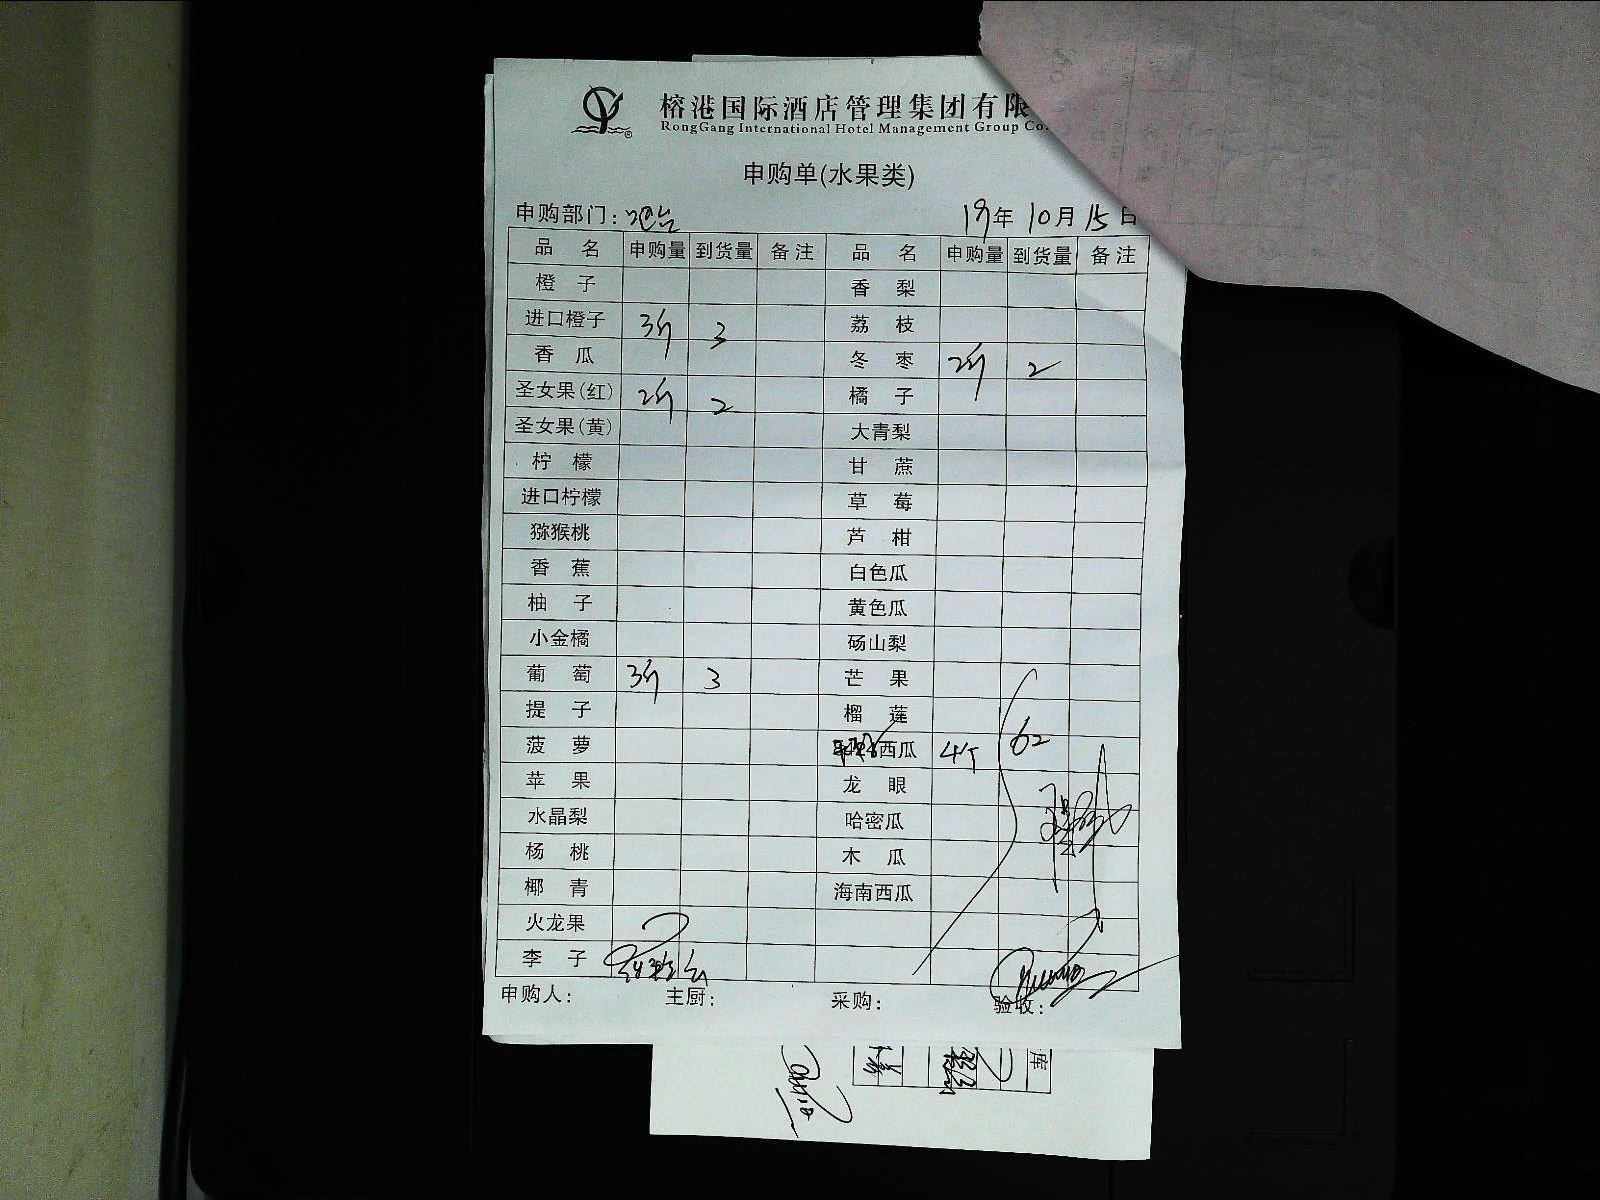 榕港国际酒店管理集团有限
RongGang International Hotel Management Group Co.
申购单(水果类)
申购部门: 吧台 19年 10月 15日
品名 申购量 到货量 备注 品名 申购量 到货量 备注
橙子 香梨
进口橙子 3斤 3 荔枝
香瓜 冬枣 2斤 2
圣女果(红) 2斤 2 橘子
圣女果(黄) 大青梨
柠檬 甘蔗
进口柠檬 草莓
猕猴桃 芦柑
香蕉 白色瓜
柚子 黄色瓜
小金橘 砀山梨
葡萄 3斤 3 芒果
提子 榴莲
菠萝 西瓜 4个 62
苹果 龙眼
水晶梨 哈密瓜
杨桃 木瓜
椰青 海南西瓜
火龙果
李子
申购人: 主厨: 采购: 验收:
库